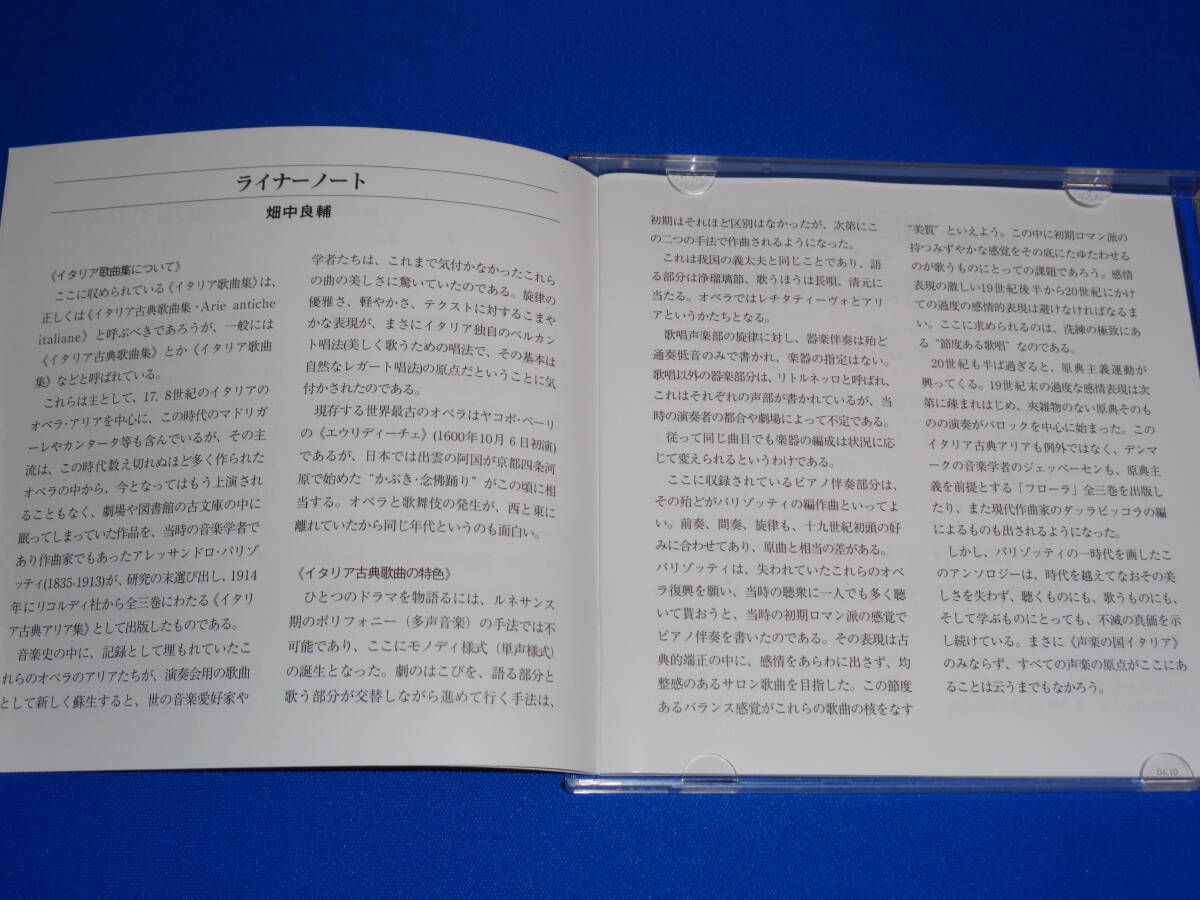 ライナーノート
畑中良輔
《イタリア歌曲集について》
ここに収められている《イタリア歌曲集》は、
正しくは《イタリア古典歌曲集・Arie antiche
italiane》と呼ぶべきであろうが、一般には
《イタリア古典歌曲集》とか《イタリア歌曲
集》などと呼ばれている。
これらは主として、17, 8世紀のイタリアの
オペラ・アリアを中心に、この時代のマドリガ
ーレやカンタータ等も含んでいるが、その主
流は、この時代数え切れぬほど多く作られた
オペラの中から、今となってはもう上演され
ることもなく、劇場や図書館の古文庫の中に
眠ってしまっていた作品を、当時の音楽学者で
あり作曲家でもあったアレッサンドロ・パリゾ
ッティ(1835-1913)が、研究の末選び出し、1914
年にリコルディ社から全三巻にわたる《イタリ
ア古典アリア集》として出版したものである。
音楽史の中に、記録として埋もれていたこ
れらのオペラのアリアたちが、演奏会用の歌曲
として新しく蘇生すると、世の音楽愛好家や
学者たちは、これまで気付かなかったこれら
の曲の美しさに驚いていたのである。旋律の
優雅さ、軽やかさ、テクストに対するこまや
かな表現が、まさにイタリア独自のベルカン
ト唱法(美しく歌うための唱法で、その基本は
自然なレガート唱法)の原点だということに気
付かされたのである。
現存する世界最古のオペラはヤコポ・ペーリ
の《エウリディーチェ》(1600年10月6日初演)
であるが、日本では出雲の阿国が京都四条河
原で始めた“かぶき・念佛踊り”がこの頃に相
当する。オペラと歌舞伎の発生が、西と東に
離れていたから同じ年代というのも面白い。
《イタリア古典歌曲の特色》
ひとつのドラマを物語るには、ルネサンス
期のポリフォニー（多声音楽）の手法では不
可能であり、ここにモノディ様式（単声様式）
の誕生となった。劇のはこびを、語る部分と
歌う部分が交替しながら進めて行く手法は、
初期はそれほど区別はなかったが、次第にこ
の二つの手法で作曲されるようになった。
これは我国の義太夫と同じことであり、語
る部分は浄瑠璃節、歌うほうは長唄、清元に
当たる。オペラではレチタティーヴォとアリ
アというかたちとなる。
歌唱声楽部の旋律に対し、器楽伴奏は殆ど
通奏低音のみで書かれ、楽器の指定はない。
歌唱以外の器楽部分は、リトルネッロと呼ばれ、
これはそれぞれの声部が書かれているが、当
時の演奏者の都合や劇場によって不定である。
従って同じ曲目でも楽器の編成は状況に応
じて変えられるというわけである。
ここに収録されているピアノ伴奏部分は、
その殆どがパリゾッティの編作曲といってよ
い。前奏、間奏、旋律も、十九世紀初頭の好
みに合わせてあり、原曲と相当の差がある。
パリゾッティは、失われていたこれらのオペ
ラ復興を願い、当時の聴衆に一人でも多く聴
いて貰おうと、当時の初期ロマン派の感覚で
ピアノ伴奏を書いたのである。その表現は古
典的端正の中に、感情をあらわに出さず、均
整感のあるサロン歌曲を目指した。この節度
あるバランス感覚がこれらの歌曲の核をなす
“美質”といえよう。この中に初期ロマン派の
持つみずやかな感覚をその底にたゆたわせる
のが歌うものにとっての課題であろう。感情
表現の激しい19世紀後半から20世紀にかけ
ての過度の感情的表現は避けなければなるま
い。ここに求められるのは、洗練の極致にあ
る“節度ある歌唱”なのである。
20世紀も半ば過ぎると、原典主義運動が
興ってくる。19世紀末の過度な感情表現は次
第に疎まれはじめ、夾雑物のない原典そのも
のの演奏がバロックを中心に始まった。この
イタリア古典アリアも例外ではなく、デンマ
ークの音楽学者のジェッペーセンも、原典主
義を前提とする「フローラ」全三巻を出版し
たり、また現代作曲家のダッラピッコラの編
によるものも出されるようになった。
しかし、パリゾッティの一時代を画したこ
のアンソロジーは、時代を越えてなおその美
しさを失わず、聴くものにも、歌うものにも、
そして学ぶものにとっても、不滅の真価を示
し続けている。まさに《声楽の国イタリア》
のみならず、すべての声楽の原点がここにあ
ることは云うまでもなかろう。